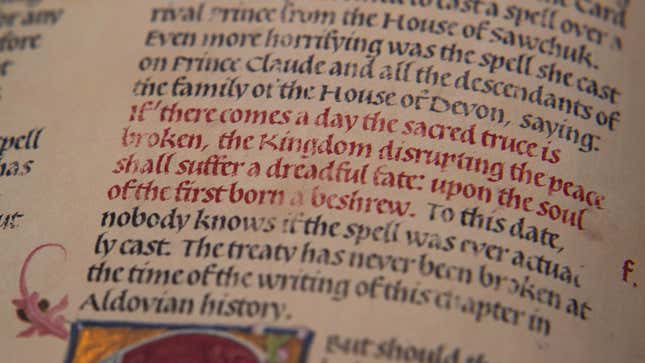 and Card
to cast a spell over a
rival Prince from the House of Sawchuk.
Even more horrifying was the spell she cast
on Prince Claude and all the descendants of
the family of the House of Devon, saying:
If there comes a day the sacred truce is
broken, the Kingdom disrupting the peace
shall suffer a dreadful fate: upon the soul
of the first born a beshrew. To this date,
nobody knows if the spell was ever actual
ly cast. The treaty has never been broken at
the time of the writing of this chapter in
Aldovian history.
But should the
or any
fore
t
pell
as
ut
f.